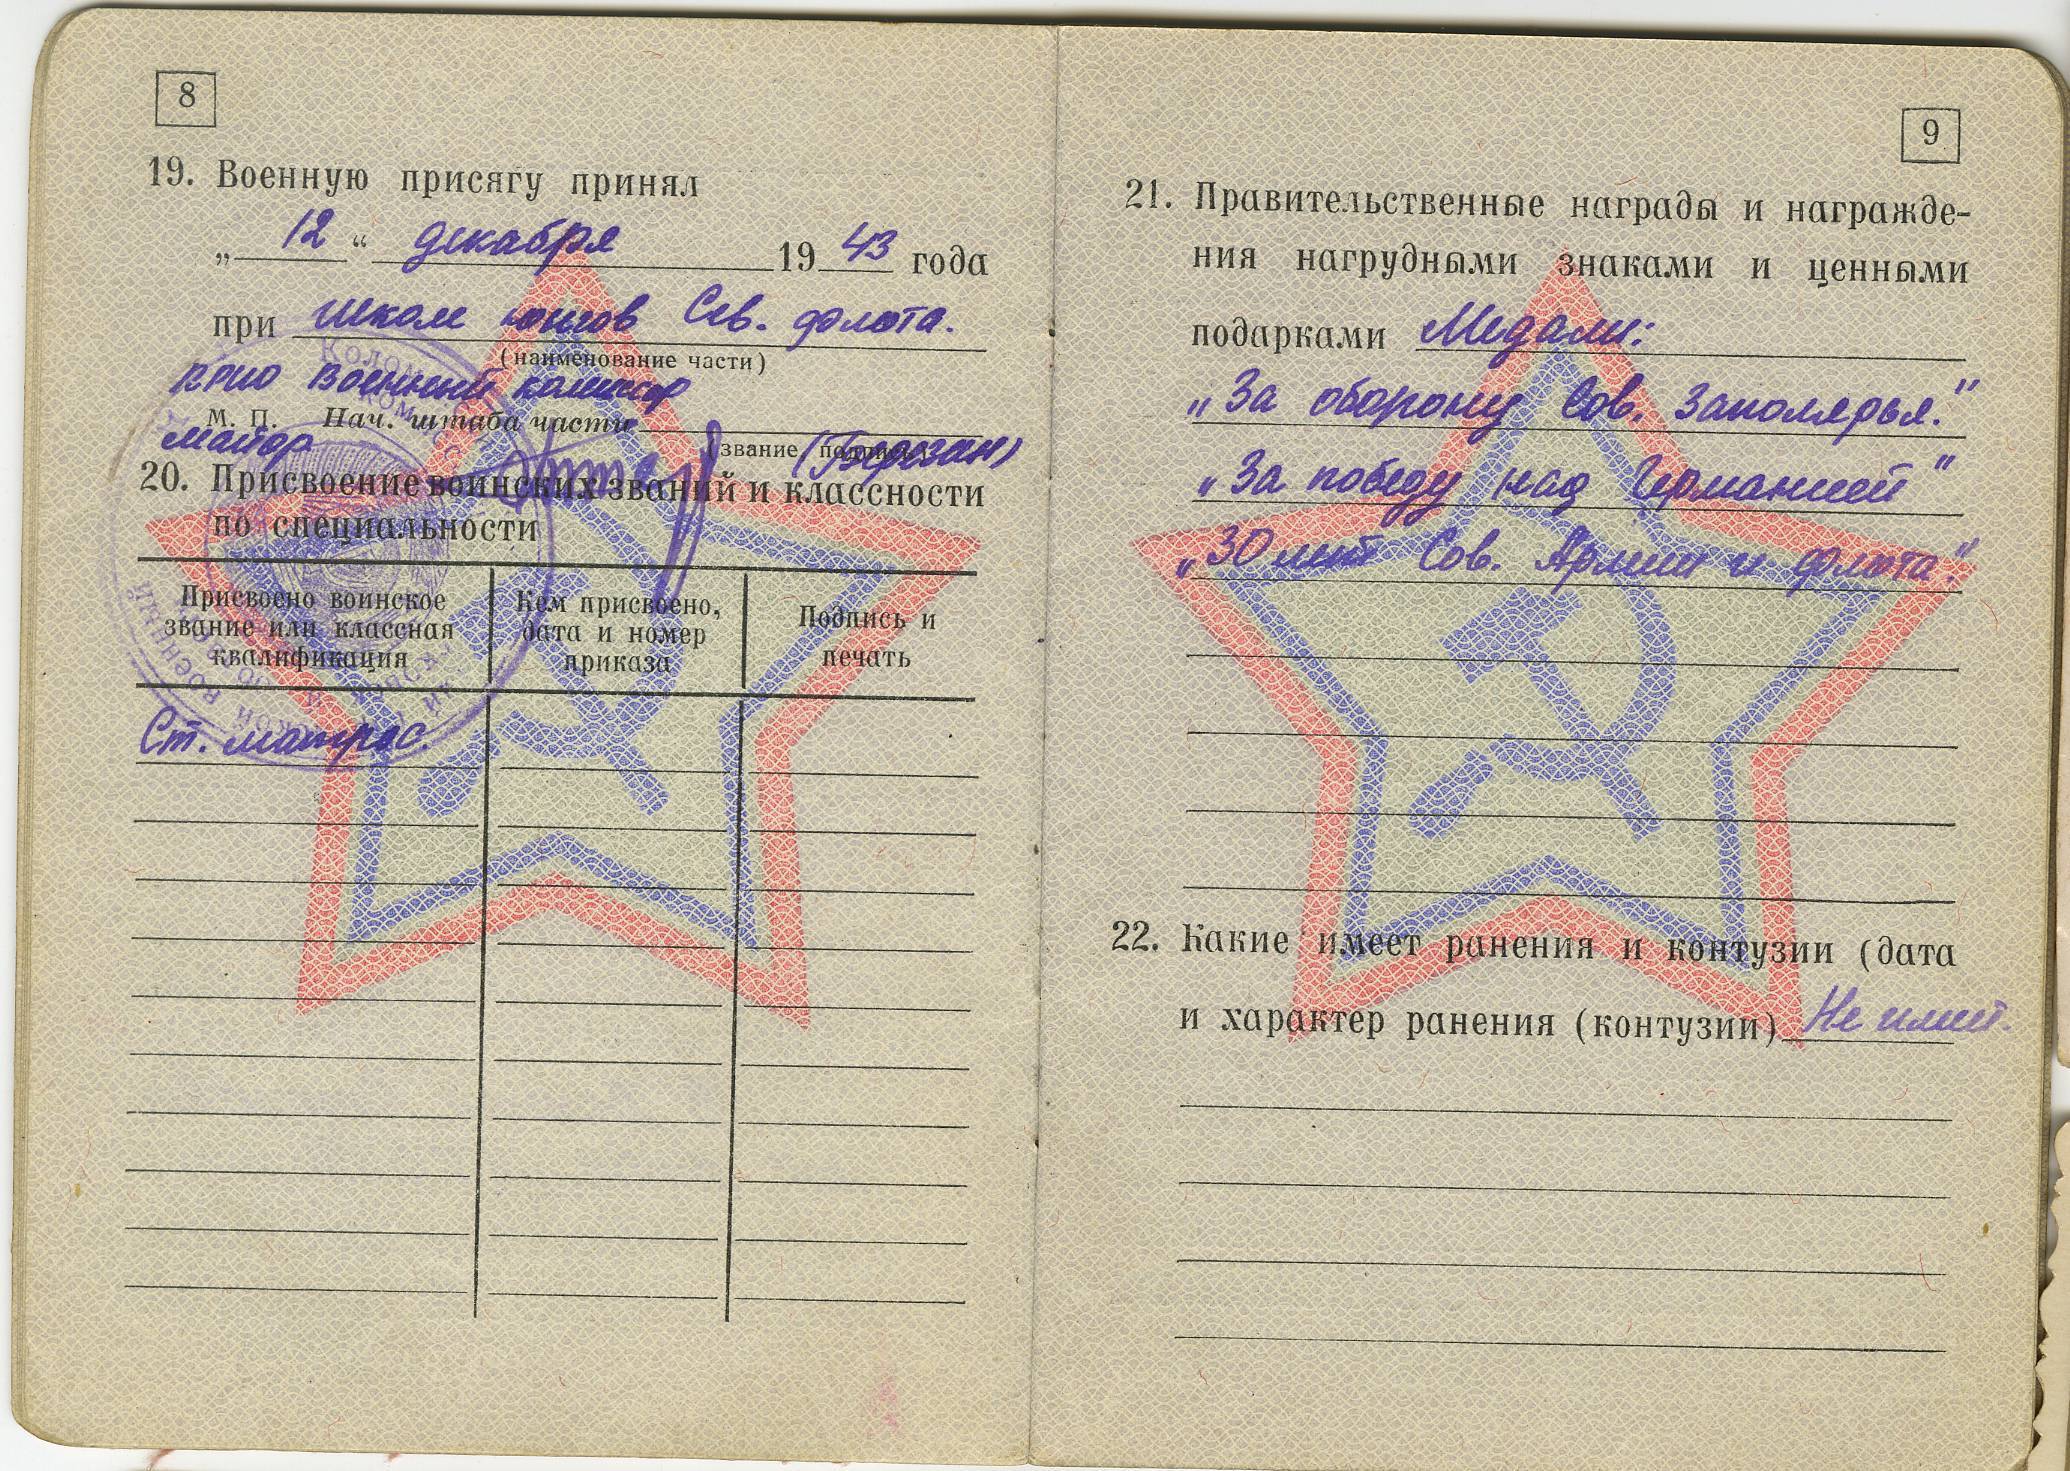 8
19. Военную присягу принял
„ 12 “ декабря 19 43 года
при Школе юнгов Сев. флота.
(наименование части)
врио военный комиссар
М. П. Нач. штаба части
майор (звание, подпись)
20. Присвоение воинских званий и классности
по специальности
Присвоено воинское звание или классная квалификация
Кем присвоено, дата и номер приказа
Подпись и печать
Ст. матрос.
9
21. Правительственные награды и награжде-
ния нагрудными знаками и ценными
подарками Медали:
„За оборону Сов. Заполярья.“
„За победу над Германией“
„30 лет Сов. Армии и флота“.
22. Какие имеет ранения и контузии (дата
и характер ранения (контузии) Не имеет.